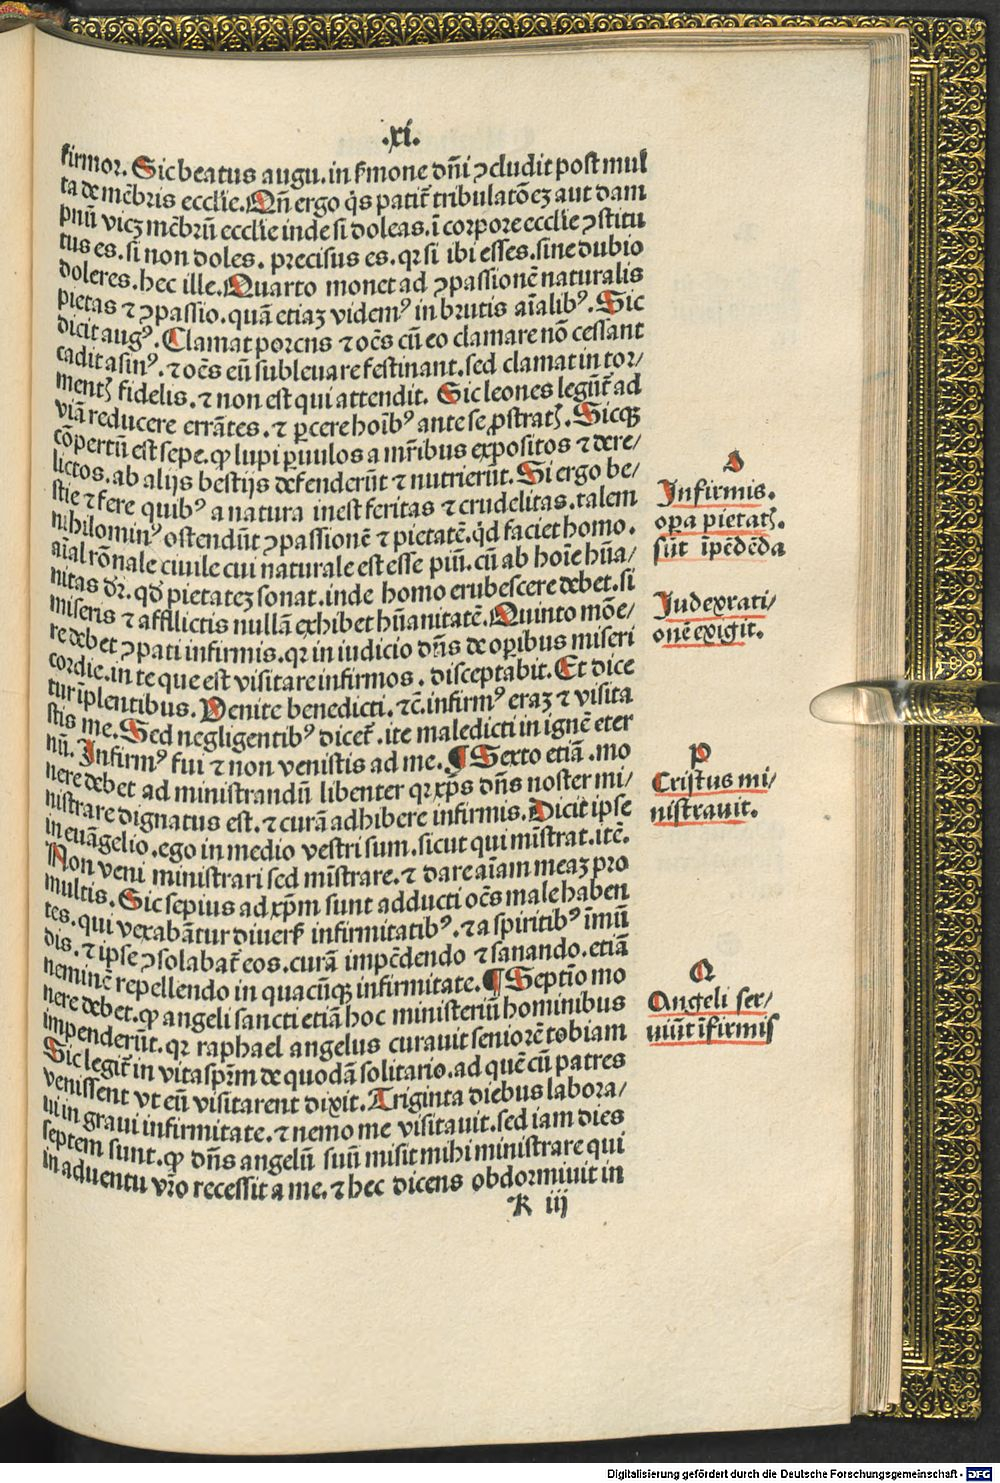 .xi.
firmor. Sic beatus augu. in s̄mone dn̄i ꝯcludit post mul
ta de mēbris ecclīe. Qn̄ ergo q̇s patit̄ tribulatōeꝫ aut dam
pnū vicꝫ mēbrū ecclīe inde si doleas. ī corpore ecclīe ꝯstitu
tus es. si non doles. precisus es. qꝛ si ibi esses. sine dubio
doleres. hec ille. Quarto monet ad ꝯpassionē naturalis
pietas ⁊ ꝯpassio. quā etiaꝫ videmꝰ in brutis aīalibꝰ. Sic
dicit augꝰ. Clamat porcus ⁊ oēs cū eo clamare nō cessant
cadit asinꝰ. ⁊ oēs eū subleuare festinant. sed clamat in tor/
mentꝭ fidelis. ⁊ non est qui attendit. Sic leones legūt̄ ad
viā reducere errātes. ⁊ ꝑcere hoībꝰ ante se ꝓstratꝭ. Sicqꝫ
cōpertū est sepe. ꝙ lupi ꝑuulos a mr̄ibus expositos ⁊ dere/
lictos. ab alijs bestijs defenderūt ⁊ nutrierūt. Si ergo be/
stie ⁊ fere quibꝰ a natura inest feritas ⁊ crudelitas. talem
nihilominꝰ ostendūt ꝯpassionē ⁊ pietatē. q̇d faciet homo.
aīal rōnale ciuile cui naturale est esse piū. cū ab hoīe hūa/
nitas dr̄. qd̄ pietateꝫ sonat. inde homo erubescere debet. si
miseris ⁊ afflictis nullā exhibet hūanitatē. Quinto mōe/
re debet ꝯpati infirmis. qꝛ in iudicio dn̄s de oꝑibus miseri
cordie. in te que est visitare infirmos. disceptabit. Et dice
tur īplentibus. Venite benedicti. ⁊c̄. infirmꝰ eraꝫ ⁊ visita
stis me. Sed negligentibꝰ dicet̄. ite maledicti in ignē eter
nū. Infirmꝰ fui ⁊ non venistis ad me. ¶ Sexto etiā. mo
nere debet ad ministrandū libenter qꝛ xp̄s dn̄s noster mi/
nistrare dignatus est. ⁊ curā adhibere infirmis. Dicit ipse
in euāgelio. ego in medio vestri sum. sicut qui mīstrat. itē.
Non veni ministrari sed mīstrare. ⁊ dare aīam meaꝫ pro
multis. Sic sepius ad xp̄m sunt adducti oēs male haben
tes. qui vexabātur diuersꝭ infirmitatibꝰ. ⁊ a spiritibꝰ īmū
dis. ⁊ ipse ꝯsolabat̄ eos. curā impēdendo ⁊ sanando. etiā
neminē repellendo in quacūqꝫ infirmitate. ¶ Septīo mo
nere debet. ꝙ angeli sancti etiā hoc ministeriū hominibus
impenderūt. qꝛ raphael angelus curauit seniorē tobiam
Sic legit̄ in vitas pr̄m de quodā solitario. ad quē cū patres
venissent vt eū visitarent dixit. Triginta diebus labora/
ui in graui infirmitate. ⁊ nemo me visitauit. sed iam dies
septem sunt. ꝙ dn̄s angelū suū misit mihi ministrare qui
in aduentu vr̄o recessit a me. ⁊ hec dicens obdormiuit in
K iij
Infirmis.
oꝑa pietatꝭ.
sūt īpēdēda
Iudex rati/
onē exigit.
P
Cristus mi/
nistrauit.
Q
Angeli ser/
uiūt īfirmis
Digitalisierung gefördert durch die Deutsche Forschungsgemeinschaft - DFG